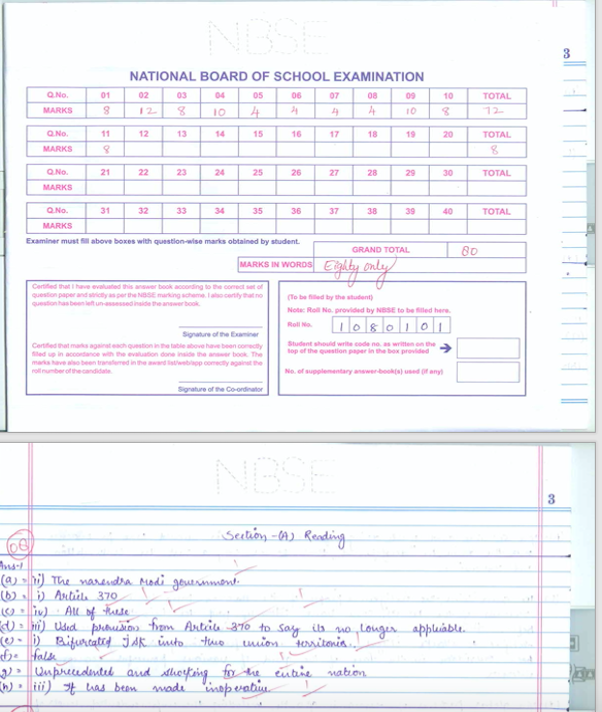 NBSE
3
NATIONAL BOARD OF SCHOOL EXAMINATION
Q.No. 01 02 03 04 05 06 07 08 09 10 TOTAL
MARKS 8 12 8 10 4 4 4 4 10 8 72
Q.No. 11 12 13 14 15 16 17 18 19 20 TOTAL
MARKS 8 8
Q.No. 21 22 23 24 25 26 27 28 29 30 TOTAL
MARKS
Q.No. 31 32 33 34 35 36 37 38 39 40 TOTAL
MARKS
Examiner must fill above boxes with question-wise marks obtained by student.
GRAND TOTAL 80
MARKS IN WORDS Eighty only
Certified that I have evaluated this answer book according to the correct set of
question paper and strictly as per the NBSE marking scheme. I also certify that no
question has been left un-assessed inside the answer book.
Signature of the Examiner
Certified that marks against each question in the table above have been correctly
filled up in accordance with the evaluation done inside the answer book. The
marks have also been transferred in the award list/web/app correctly against the
roll number of the candidate.
Signature of the Co-ordinator
(To be filled by the student)
Note: Roll No. provided by NBSE to be filled here.
Roll No. 1 0 8 0 1 0 1
Student should write code no. as written on the
top of the question paper in the box provided
No. of supplementary answer-book(s) used (if any)
NBSE
3
Section -(A) Reading
08
Ans-1
(a) = ii) The narendra Modi government.
(b) = i) Article 370
(c) = iv) All of these
(d) = iii) Used provision from Article 370 to say its no longer appliable.
(e) = i) Bifurcated J&K into two union territories.
(f) = false
(g) = Unprecedented and shocking for the entire nation
(h) = iii) It has been made inoperative